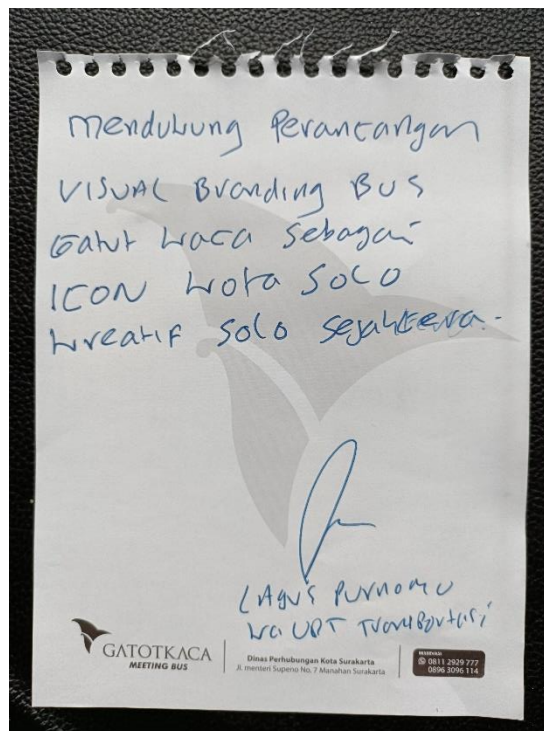 Mendukung Perancangan
VISUAL Branding BUS
Gatut kaca Sebagai
ICON kota SOLO
kreatif Solo sejahtera.
(Agus Purnomo
ka UPT Transportasi
GATOTKACA
MEETING BUS
Dinas Perhubungan Kota Surakarta
Jl. menteri Supeno No. 7 Manahan Surakarta
RESERVASI
0811 2929 777
0896 3096 114